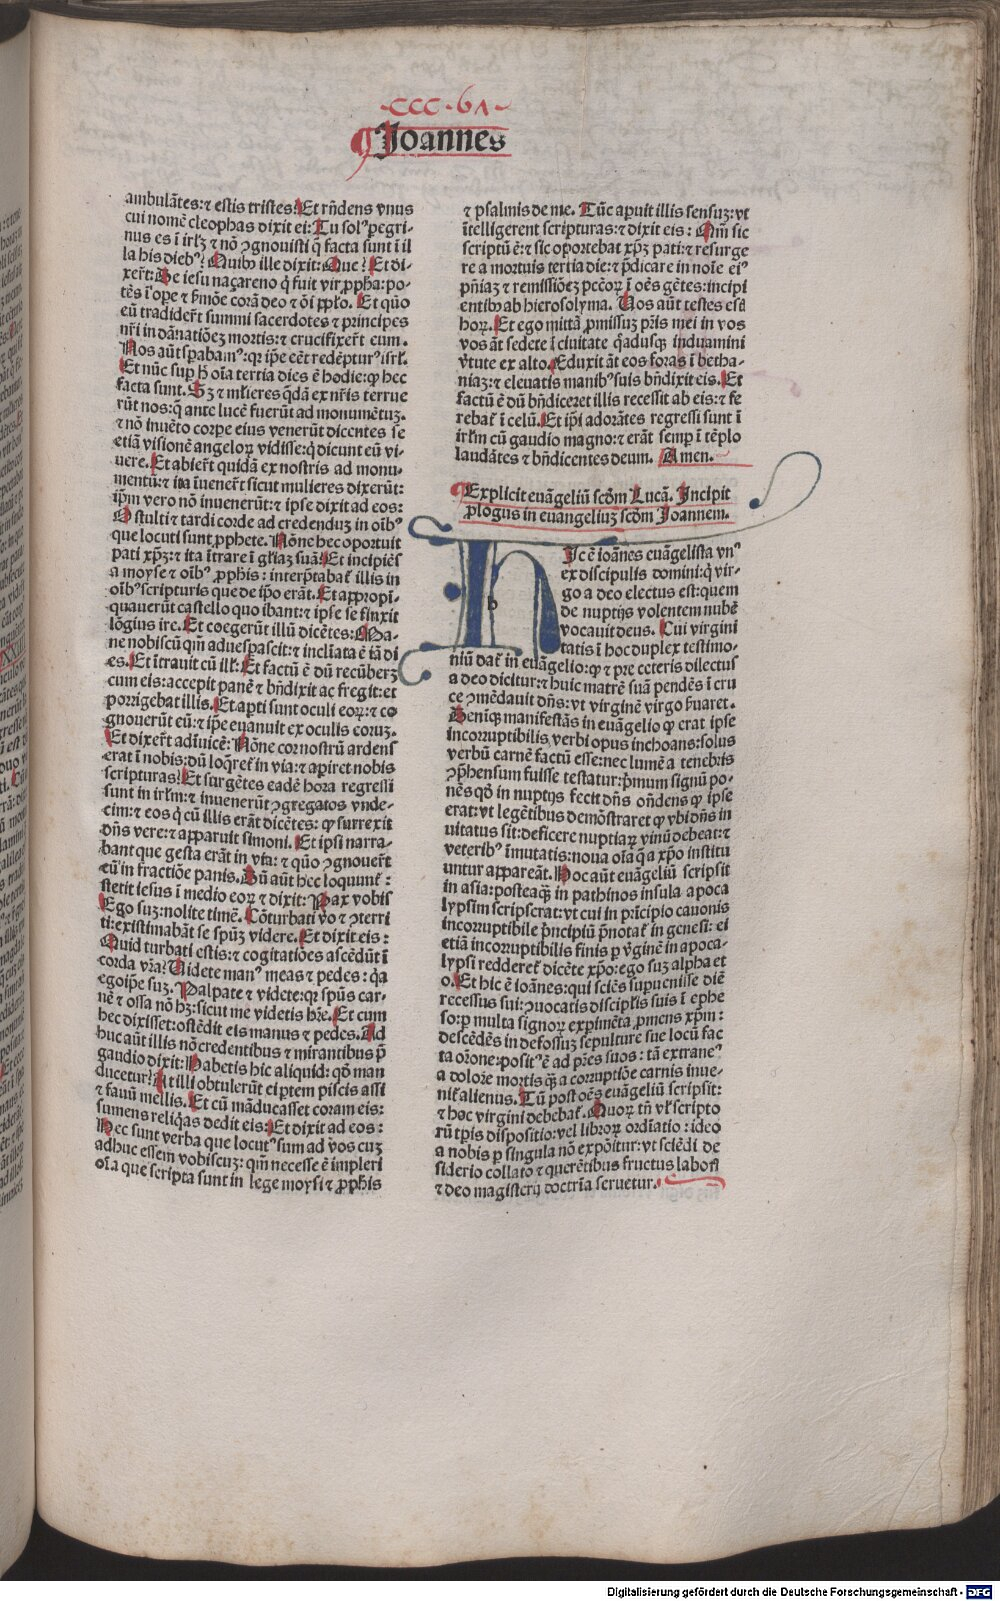 ·CCC·6Λ·
¶Joannes
ambulātes:⁊ estis tristes? Et rn̄dens vnus
cui nomē cleophas dixit ei: Tu solꝰ pegri-
nus es ī irlꝫ ⁊ nō ꝯgnouisti q̄ facta sunt ī il
la his diebꝰ? Quibꝰ ille dixit: Que? Et di-
xert̄: De iesu naçareno q̄ fuit vir ꝓpha: po-
tēs ī ope ⁊ ẜmōe corā deo ⁊ oī pp̄lo. Et quō
eū tradider̄t summi sacerdotes ⁊ principes
nr̄i in dānatiōeꝫ mortis: ⁊ crucifixer̄t eum.
Nos aūt sꝑabamꝰ: qꝛ ip̄e eēt redēpturꝰ isrl̄.
Et nūc suꝑ h̄ oīa tertia dies ē hodie: ꝙ hec
facta sunt. Sꝫ ⁊ ml̄ieres q̄dā ex nr̄is terrue
rūt nos: q̄ ante lucē fuerūt ad monumētuꝫ.
⁊ nō inuēto corpe eius venerūt dicentes se
etiā visionē angeloꝝ vidisse: q̄ dicunt eū vi-
uere. Et abier̄t quidā ex nostris ad monu-
mentū: ⁊ ita īuener̄t sicut mulieres dixerūt:
ip̄m vero nō inuenerūt: ⁊ ipse dixit ad eos:
O stulti ⁊ tardi corde ad credenduꝫ in oībꝰ
que locuti sunt ꝓphete. Nōne hec oportuit
pati xp̄ꝫ: ⁊ ita ītrare ī gl̄iaꝫ suā? Et incipiēs
a moyse ⁊ oībꝰ ꝓphis: interp̄tabat̄ illis in
oībꝰ scripturis que de ip̄o erāt. Et appropī-
quauerūt castello quo ibant: ⁊ ipse se finxit
lōgius ire. Et coegerūt illū dicētes: Ma-
ne nobiscū qm̄ aduespascit: ⁊ inclīata ē iā di
es. Et ītrauit cū ill̄: Et factū ē dū recūberꝫ
cum eis: accepit panē ⁊ bn̄dixit ac fregit: et
porrigebat illis. Et aꝑti sunt oculi eoꝝ: ⁊ co
gnouerūt eū: ⁊ ip̄e euanuit ex oculis eoruꝫ.
Et dixer̄t adīuicē: Nōne cor nostrū ardens
erat ī nobis: dū loq̄ret̄ in via: ⁊ aꝑiret nobis
scripturas? Et surgētes eadē hora regressi
sunt in irl̄m: ⁊ inuenerūt ꝯgregatos vnde-
cim: ⁊ eos q̄ cū illis erāt dicētes: ꝙ surrexit
dn̄s vere: ⁊ apparuit simoni. Et ipsi narra-
bant que gesta erāt in via: ⁊ quō ꝯgnouer̄t
eū in fractiōe panis. Dū aūt hec loquunt̄:
stetit iesus ī medio eoꝝ ⁊ dixit: Pax vobis
Ego suꝫ: nolite timē. Cōturbati v̄o ⁊ ꝯterri
ti: existimabāt se spūꝫ videre. Et dixit eis:
Quid turbati estis: ⁊ cogitatiōes ascēdūt ī
corda vr̄a? Videte manꝰ meas ⁊ pedes: q̄a
ego ip̄e suꝫ. Palpate ⁊ videte: qꝛ spūs car-
nē ⁊ ossa nō hꝫ: sicut me videtis hr̄e. Et cum
hec dixisset: ostēdit eis manus ⁊ pedes. Ad
huc aūt illis nō credentibus ⁊ mirantibus p̄
gaudio dixit: Habetis hic aliquid: qd̄ man
ducetur? At illi obtulerūt ei ꝑtem piscis assi
⁊ fauū mellis. Et cū māducasset coram eis:
sumens reliq̄as dedit eis: Et dixit ad eos:
Hec sunt verba que locutꝰ sum ad vos cuꝫ
adhuc essem vobiscuꝫ: qm̄ necesse ē impleri
oīa que scripta sunt in lege moysi ⁊ ꝓphis
⁊ psalmis de me. Tūc aꝑuit illis sensuꝫ: vt
ītelligerent scripturas: ⁊ dixit eis: Qm̄ sic
scriptū ē: ⁊ sic oportebat xp̄ꝫ pati: ⁊ resurge
re a mortuis tertia die: ⁊ p̄dicare in noīe eiꝰ
pn̄iaꝫ ⁊ remissiōeꝫ pctōꝝ ī oēs gētes: incipi
entibꝰ ab hierosolyma. Vos aūt testes estꝭ
hoꝝ. Et ego mittā ꝓmissuꝫ pr̄is mei in vos
vos āt sedete ī ciuitate q̄adusqꝫ induamini
v̄tute ex alto. Eduxit āt eos foras ī betha-
niaꝫ: ⁊ eleuatis manibꝰ suis bn̄dixit eis. Et
factū ē dū bn̄diceret illis recessit ab eis: ⁊ fe
rebat̄ ī celū. Et ip̄i adorātes regressi sunt ī
irl̄m cū gaudio magno: ⁊ erāt semꝑ ī tēplo
laudātes ⁊ bn̄dicentes deum. Amen.
¶Explicit euāgeliū scd̄m Lucā. Incipit
ꝓlogus in euangeliuꝫ scd̄m Joannem.
h
Ic ē ioānes euāgelista vnꝰ
ex discipulis domini: q̄ vir-
go a deo electus est: quem
de nuptijs volentem nubē
vocauit deus. Cui virgini
tatis ī hoc duplex testimo-
niū dat̄ in euāgelio: ꝙ ⁊ pre ceteris dilectus
a deo dicitur: ⁊ huic matrē suā pendēs ī cru
ce ꝯmēdauit dn̄s: vt virginē virgo ẜuaret.
Deniqꝫ manifestās in euāgelio ꝙ erat ipse
incorruptibilis verbi opus inchoans: solus
verbū carnē factū esse: nec lumē a tenebris
ꝯp̄hensum fuisse testatur: p̄mum signū po-
nēs qd̄ in nuptijs fecit dn̄s on̄dens ꝙ ipse
erat: vt legētibus demōstraret ꝙ vbi dn̄s in
uitatus sit: deficere nuptiaꝝ vinū debeat: ⁊
veteribꝰ īmutatis: noua oīa q̄ a xp̄o institu
untur appareāt. Hoc aūt euāgeliū scripsit
in asia: posteaq̄ꝫ in pathmos insula apoca
lypsim scripserat: vt cui in pr̄icipio canonis
incorruptibile p̄ncipiū p̄notat̄ in genesi: ei
etiā incorruptibilis finis ꝑ v̄ginē in apoca-
lypsi redderet̄ dicēte xp̄o: ego suꝫ alpha et
o. Et hic ē ioānes: qui sciēs supuenisse diē
recessus sui: ꝯuocatis discipl̄is suis ī ephe
so: ꝑ multa signoꝝ exꝑimēta ꝓmens xp̄m:
descēdēs in defossuꝫ sepulture sue locū fac
ta or̄one: positꝰ ē ad pr̄es suos: tā extraneꝰ
a dolore mortis q̄ꝫ a corruptiōe carnis inue-
nit̄ alienus. Tū post oēs euāgeliū scripsit:
⁊ hoc virgini debebat̄. Quoꝝ tn̄ vl̄ scripto
rū tp̄is dispositio: vel libroꝝ ordīatio: ideo
a nobis ꝑ singula nō expōitur: vt sciēdi de
siderio collato ⁊ querētibus fructus laboꝭ
⁊ deo magisterij doctrīa seruetur.
Digitalisierung gefördert durch die Deutsche Forschungsgemeinschaft - DFG